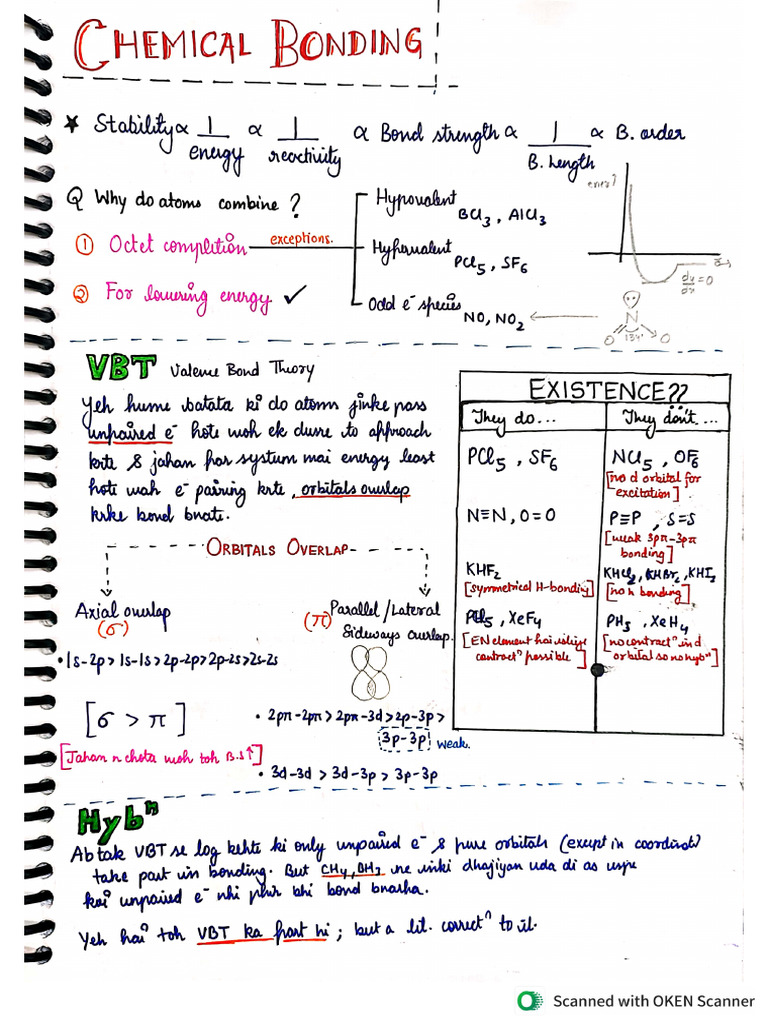 CHEMICAL BONDING
★ Stability ∝ 1/energy ∝ 1/reactivity ∝ Bond strength ∝ 1/B. Length ∝ B. order
Q Why do atoms combine?
① Octet completion
exceptions.
② For lowering energy ✓
Hypovalent BCl3, AlCl3
Hypervalent PCl5, SF6
Odd e⁻ species NO, NO2
du/dx = 0
N
O 134° O
VBT Valence Bond Theory
Yeh hume batata ki do atoms jinke pass
unpaired e⁻ hote woh ek dusre to approach
krte & jahan par system mai energy least
hote wah e⁻ pairing krte, orbitals overlap
krke bond bnate.
EXISTENCE??
They do... They don't...
PCl5, SF6
NCl5, OF6
[no d orbital for
excitation]
N≡N, O=O
P≡P, S=S
[weak 3pπ-3pπ
bonding]
KHF2
[symmetrical H-bonding]
KHCl2, KHBr2, KHI2
[no h bonding]
PCl5, XeF4
[EN element hai isliye
contractⁿ possible]
PH5, XeH4
[no contractⁿ in d
orbital so no hybⁿ]
ORBITALS OVERLAP
Axial overlap
(σ)
(π) Parallel/Lateral
Sideways overlap.
• 1s-2p > 1s-1s > 2p-2p > 2p-2s > 2s-2s
[σ > π]
[Jahan n chota woh toh B.S↑]
• 2pπ-2pπ > 2pπ-3d > 2p-3p >
3p-3p weak.
• 3d-3d > 3d-3p > 3p-3p
Hybⁿ
Ab tak VBT se log kehte ki only unpaired e⁻ & pure orbitals (except in coordinatⁿ)
take part in bonding. But CH4, BH3 ne inki dhajiyan uda di as uspe
koi unpaired e⁻ nhi phir bhi bond bnarha.
Yeh hai toh VBT ka part hi; but a lil. correctⁿ to it.
Scanned with OKEN Scanner